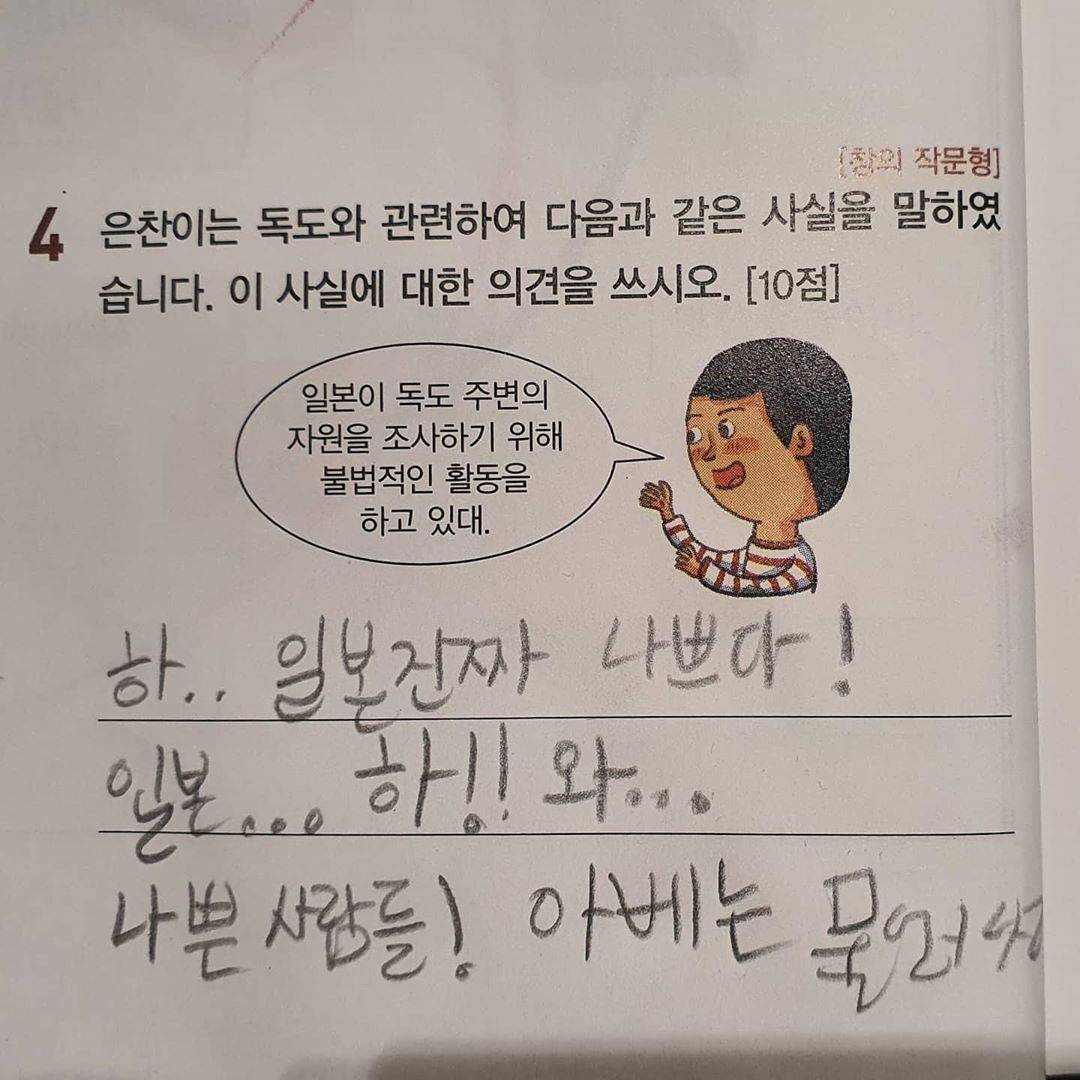 [창의 작문형]
4 은찬이는 독도와 관련하여 다음과 같은 사실을 말하였
습니다. 이 사실에 대한 의견을 쓰시오. [10점]
일본이 독도 주변의
자원을 조사하기 위해
불법적인 활동을
하고 있대.
하.. 일본진짜 나쁘다!
일본... 하!! 와...
나쁜 사람들! 아베는